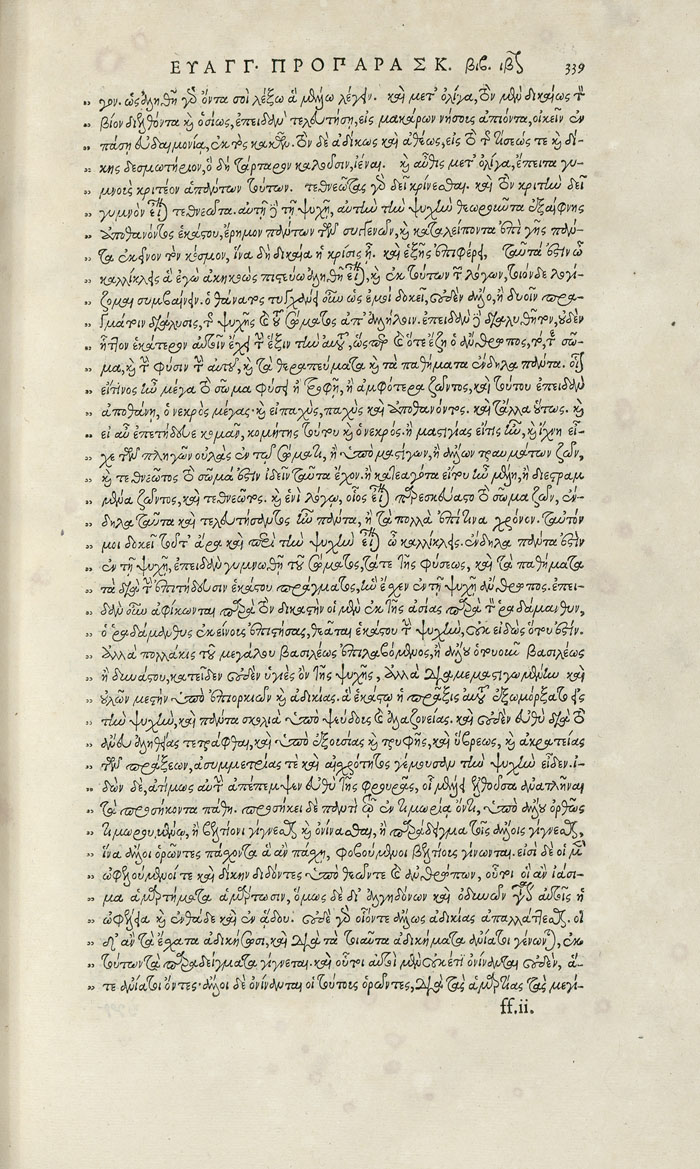 ΕΥΑΓΓ. ΠΡΟΠΑΡΑΣΚ. βιβ. ιβ 339
γον. ὡς ἀληθῆ γὸ ὄντα σοι λέξω ἃ μέλλω λέγειν. καὶ μετ' ὀλίγα, τὸν μὲν δικαίως τ
βίον διελθόντα κὶ ὁσίως, ἐπειδαν τελευτήσῃ, εἰς μακάρων νήσοις ἀπιόντα, οἰκεῖν ἐν
πάσῃ εὐδαιμονίᾳ, ἐκτὸς κακῶν. τὸν δὲ ἀδίκως καὶ ἀθέως, εἰς τὸ τ τίσεώς τε κὶ δί-
κης δεσμωτήριον, ὃ δὴ τάρταρον καλοῦσιν, ἰέναι. κὶ αὖθις μετ' ὀλίγα, ἔπειτα γυ-
μνοὶς κριτέον ἁπάντων τούτων. τεθνεῶτας γὸ δεῖ κρίνεσθαι. καὶ τὸν κριτὴν δεῖ
γυμνὸν εἶναι τεθνεῶτα. αὐτῇ τῇ ψυχῇ, αὐτὴν τὴν ψυχὴν θεωροῦντα ἐξαίφνης
ἀποθανόντος ἑκάστου, ἔρημον πάντων τῶν συγγενῶν, κὶ καταλείποντα ἐπὶ γῆς πάν-
τα ἐκεῖνον τὸν κόσμον, ἵνα δὴ δικαία ἡ κρίσις ᾖ. καὶ ἑξῆς ἐπιφέρει, ταῦτά ἐστιν ὦ
καλλίκλης ἃ ἐγὼ ἀκηκοὼς πιστεύω ἀληθῆ εἶναι, κὶ ἐκ τούτων τ λόγων, τοιόνδε λογί-
ζομαι συμβαίνειν. ὁ θάνατος τυγχάνει ὢν ὡς ἐμοὶ δοκεῖ, οὐδὲν ἄλλο, ἢ δυοῖν πρα-
γμάτοιν διάλυσις, τ ψυχῆς καὶ τοῦ σώματος ἀπ' ἀλλήλοιν. ἐπειδὰν διαλυθῆτον, οὐδὲν
ἧττον ἑκάτερον αὐτοῖν ἔχει τ ἕξιν τὴν αὑτοῦ, ὥσπερ καὶ ὅτε ἔζη ὁ ἄνθρωπος, τό, τ σῶ-
μα, κὶ τ φύσιν τ αὑτοῦ, κὶ τὰ θεραπεύματα κὶ τὰ παθήματα ἔνδηλα πάντα. οἷον
εἴ τινος ἦν μέγα τὸ σῶμα φύσει ἢ τροφῇ, ἢ ἀμφότερα ζῶντος, καὶ τούτου ἐπειδὰν
ἀποθάνῃ, ὁ νεκρὸς μέγας. κὶ εἰ παχὺς, παχὺς καὶ ἀποθανόντος. καὶ τἄλλα οὕτως. κὶ
εἰ αὖ ἐπετήδευε κομᾶν, κομήτης τούτου κὶ ὁ νεκρὸς. ἢ μαστιγίας εἴτις ἦν, κὶ ἴχνη εἶ-
χε τῶν πληγῶν οὐλὰς ἐν τῷ σώματι, ἢ ὑπὸ μαστίγων, ἢ ἄλλων τραυμάτων ζῶν,
κὶ τεθνεῶτος τὸ σῶμά ἐστιν ἰδεῖν ταῦτα ἔχον. ἢ κατεαγότα εἴτου ἦν μέλη, ἢ διεστραμ
μένα ζῶντος, καὶ τεθνεῶτος. κὶ ἑνὶ λόγῳ, οἷος εἶναι παρεσκεύαστο τὸ σῶμα ζῶν, ἔν-
δηλα ταῦτα καὶ τελευτήσαντος ἦν πάντα, ἢ τὰ πολλὰ ἐπί τινα χρόνον. ταυτὸν
μοι δοκεῖ τοῦτ' ἄρα καὶ περὶ τὴν ψυχὴν εἶναι ὦ καλλίκλης. ἔνδηλα πάντα ἐστὶν
ἐν τῇ ψυχῇ, ἐπειδὰν γυμνωθῇ τοῦ σώματος, τά τε τῆς φύσεως, καὶ τὰ παθήματα
τὰ διὰ τ ἐπιτήδευσιν ἑκάστου πράγματος, ἣν ἔσχεν ἐν τῇ ψυχῇ ἄνθρωπος. ἐπει-
δὰν οὖν ἀφίκωνται παρὰ τὸν δικαστὴν οἱ μὲν ἐκ τῆς ἀσίας παρὰ τ ραδάμανθυν,
ὁ ραδάμανθυς ἐκείνοις ἐπιστήσας, θεᾶται ἑκάστου τ ψυχὴν, οὐκ εἰδὼς ὅτου ἐστὶν.
ἀλλὰ πολλάκις τοῦ μεγάλου βασιλέως ἐπιλαβόμενος, ἢ ἄλλου ὁτουοῦν βασιλέως
ἢ δυνάστου, κατεῖδεν οὐδὲν ὑγιὲς ὂν τῆς ψυχῆς, ἀλλὰ διαμεμαστιγωμένην καὶ
οὐλῶν μεστὴν ὑπὸ ἐπιορκιῶν κὶ ἀδικίας. ἃ ἑκάστῳ ἡ πρᾶξις αὐτοῦ ἐξωμόρξατο εἰς
τὴν ψυχὴν, καὶ πάντα σκολιὰ ὑπὸ ψεύδους καὶ ἀλαζονείας. καὶ οὐδὲν εὐθὺ διὰ τὸ
ἄνευ ἀληθείας τετράφθαι, καὶ ὑπὸ ἐξουσίας κὶ τρυφῆς, καὶ ὕβρεως, κὶ ἀκρατείας
τῶν πράξεων, ἀσυμμετρίας τε καὶ αἰσχρότητος γέμουσαν τὴν ψυχὴν εἶδεν. ἰ-
δὼν δὲ, ἀτίμως αὐτ ἀπέπεμψεν εὐθὺ τῆς φρουρᾶς, οἷ μέλλει ἐλθοῦσα ἀνατλῆναι
τὰ προσήκοντα πάθη. προσήκει δὲ παντὶ τῷ ἐν τιμωρίᾳ ὄντι, ὑπὸ ἄλλου ὀρθῶς
τιμωρουμένῳ, ἢ βελτίονι γίγνεσθαι κὶ ὀνίνασθαι, ἢ παράδειγμα τοῖς ἄλλοις γίγνεσθαι,
ἵνα ἄλλοι ὁρῶντες πάσχοντα ἃ ἂν πάσχῃ, φοβούμενοι βελτίους γίνωνται. εἰσὶ δὲ οἱ μὲν
ὠφελούμενοί τε καὶ δίκην διδόντες ὑπὸ θεῶν τε καὶ ἀνθρώπων, οὗτοι οἳ ἂν ἰάσι-
μα ἁμαρτήματα ἁμάρτωσιν, ὅμως δὲ δι' ἀλγηδόνων καὶ ὀδυνῶν γίνεται αὐτοῖς ἡ
ὠφέλεια κὶ ἐνθάδε καὶ ἐν ᾅδου. οὐδὲ γὸ οἷόντε ἄλλως ἀδικίας ἀπαλλάττεσθαι. οἳ
δ' ἂν τὰ ἔσχατα ἀδικήσωσι, καὶ διὰ τὰ τοιαῦτα ἀδικήματα ἀνίατοι γένωνται, ἐκ
τούτων τὰ παραδείγματα γίγνεται. καὶ οὗτοι αὐτοὶ μὲν οὐκέτι ὀνίνανται οὐδὲν, ἅ-
τε ἀνίατοι ὄντες. ἄλλοι δὲ ὀνίνανται οἱ τούτοις ὁρῶντες, διὰ τὰς ἁμαρτίας τὰς μεγί-
ff.ii.